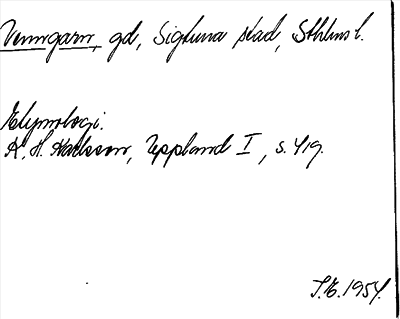 Venngarn, gd, Sigtuna stad, Sthlms l.
Etymologi.
K. H. Karlsson, Uppland I, s. 419.
S.E. 1954.